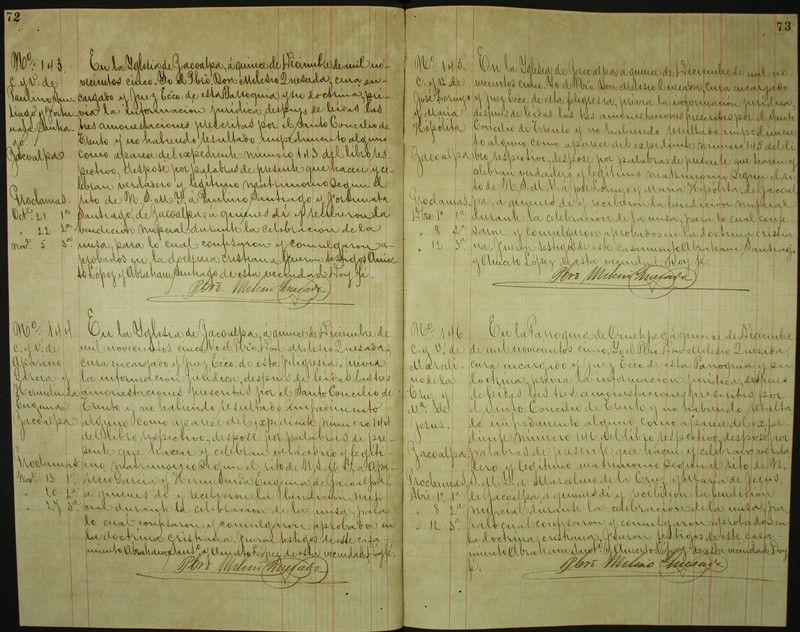 72
No. 143.
C. y V. de
Paulino San-
tiago y Fortu-
nata Santia-
go
Zacoalpa
Proclamas
Oct. 21 1a
" 22 2a
Nov. 5 3a
En la Yglesia de Zacoalpa, á quince de Diciembre de mil no-
vecientos cinco. Yo el Pbro. Don Melesio Quesada, cura en-
cargado y Juez Ecco. de esta Parroquia y su doctrina, pre-
via la información jurídica, después de leidas las
tres amonestaciones prescritas por el Santo Concilio de
Trento y no habiendo resultado impedimento alguno
como aparece del expediente número 143 del libro res-
pectivo, desposé por palabras de presente que hacen y ce-
lebran verdadero y legítimo matrimonio según el
rito de N. S. M. Y. á Paulino Santiago y Fortunata
Santiago, de Zacoalpa, á quienes dí y recibieron la
bendición nupcial durante la celebración de la
misa, para lo cual confesaron y comulgaron a-
probados en la doctrina cristiana. Fueron testigos Anice-
to López y Abraham Santiago de esta vecindad. Doy fe.
Pbro. Melesio Quesada
No. 144
C. y V. de
Aparicio
García y
Herminia
Eugenia
Zacoalpa
Proclamas
Nov. 13 1a
" 20 2a
" 27 3a
En la Yglesia de Zacoalpa, á quince de Diciembre de
mil novecientos cinco. Yo el Pbro. Don Melesio Quesada,
cura encargado y Juez Ecco. de esta feligresía, previa
la información jurídica, después de leidas las tres
amonestaciones prescritas por el Santo Concilio de
Trento y no habiendo resultado impedimento
alguno como aparece del expediente número 144
del libro respectivo, desposé por palabras de pre-
sente que hacen y celebran verdadero y legíti-
mo matrimonio según el rito de N. S. M. Y. á Apa-
ricio García y Herminia Eugenia de Zacoalpa,
á quienes dí y recibieron la bendición nup-
cial durante la celebración de la misa, para
lo cual confesaron y comulgaron aprobados en
la doctrina cristiana. Fueron testigos de este casa-
miento Abraham Sant. y Aniceto López de esta vecindad. Doy fe.
Pbro. Melesio Quesada
73
No. 145.
C. y V. de
José Lorenzo
y María
Hipólita
Zacoalpa
Proclamas
Dbre. 1o 1a
" 8 2a
" 12 3a
En la Yglesia de Zacoalpa, á quince de Diciembre de mil no-
vecientos cinco. Yo el Pbro. Don Melesio Quesada, cura encargado
y Juez Ecco. de esta feligresía, previa la información jurídica,
después de leidas las tres amonestaciones prescritas por el Santo
Concilio de Trento y no habiendo resultado impedimen-
to alguno como aparece del expediente número 145 del li-
bro respectivo, desposé por palabras de presente que hacen y
celebran verdadero y legítimo matrimonio según el ri-
to de N. S. M. Y. á José Lorenzo y María Hipólita, de Zacoal-
pa, á quienes dí y recibieron la bendición nupcial
durante la celebración de la misa, para lo cual confe-
saron y comulgaron aprobados en la doctrina cristia-
na. Fueron testigos de este casamiento Abraham Santiago
y Aniceto López de esta vecindad. Doy fe.
Pbro. Melesio Quesada
No. 146
C. y V. de
Marceli-
no de la
Cruz y
Ma. de
Jesus.
Zacoalpa
Proclamas
Dbre. 1o 1a
" 8 2a
" 12 3a
En la Parroquia de Ometepec, á quince de Diciembre
de mil novecientos cinco. Yo el Pbro. Don Melesio Quesada,
cura encargado y Juez Ecco. de esta Parroquia y su
doctrina, previa la información jurídica, después
de leidas las tres amonestaciones prescritas por
el Santo Concilio de Trento y no habiendo resulta-
do impedimento alguno como aparece del expe-
diente número 146 del libro respectivo, desposé por
palabras de presente que hacen y celebran verda-
dero y legítimo matrimonio según el rito de N.
S. M. Y. á Marcelino de la Cruz y María de Jesús,
de Zacoalpa, á quienes dí y recibieron la bendición
nupcial, durante la celebración de la misa, pa-
ra lo cual confesaron y comulgaron aprobados en
la doctrina cristiana. Fueron testigos de este casa-
miento Abraham Sant. y Aniceto López de esta vecindad. Doy
fe.
Pbro. Melesio Quesada